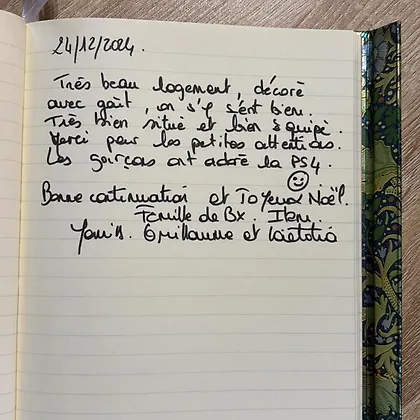 24/12/2024.
Très beau logement, décoré
avec goût, on s'y sent bien.
Très bien situé et bien équipé.
Merci pour les petites attentions.
Les garçons ont adoré la PS4.
Bonne continuation et Joyeux Noël.
Famille de Bx.
Guillaume et Laetitia